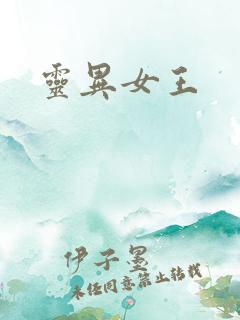 靈異女王
伊子墨
未經同意禁止轉載